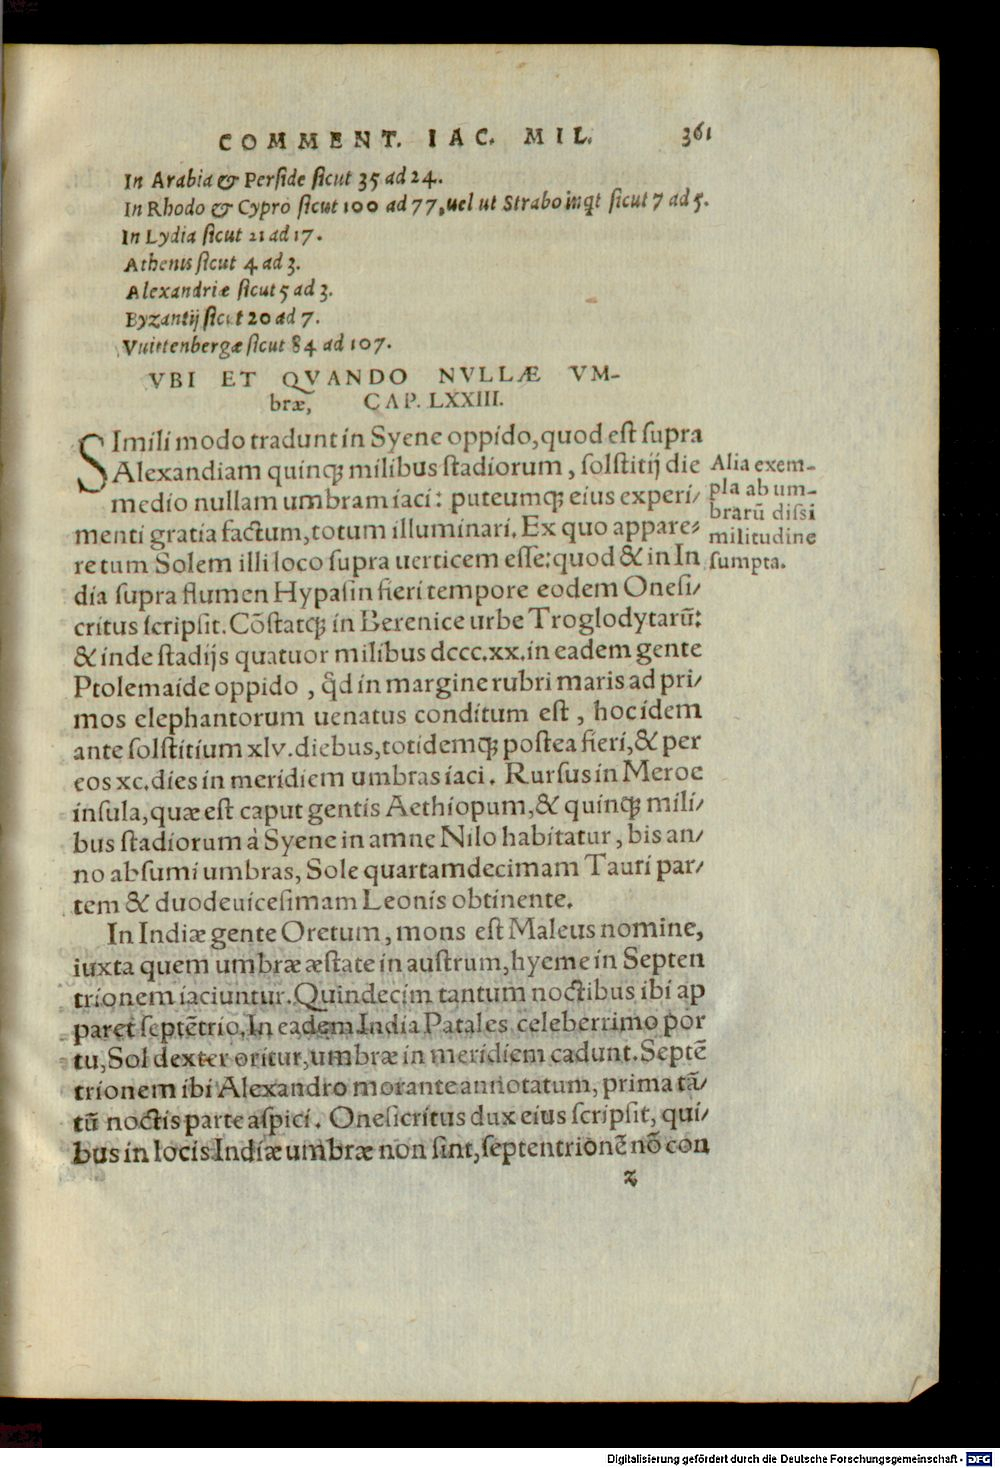 COMMENT. IAC. MIL. 361
In Arabia & Perside sicut 35 ad 24.
In Rhodo & Cypro sicut 100 ad 77, uel ut Strabo inqt sicut 7 ad 5.
In Lydia sicut 21 ad 17.
Athenis sicut 4 ad 3.
Alexandriæ sicut 5 ad 3.
Byzantij sicut 20 ad 7.
Vuittenbergæ sicut 84 ad 107.
VBI ET QVANDO NVLLÆ VM-
bræ, CAP. LXXIII.
SImili modo tradunt in Syene oppido, quod est supra
Alexandiam quinqꝫ milibus stadiorum, solstitij die
medio nullam umbram iaci: puteumqꝫ eius experi/
menti gratia factum, totum illuminari. Ex quo appare/
re tum Solem illi loco supra uerticem esse: quod & in In
dia supra flumen Hypasin fieri tempore eodem Onesi/
critus scripsit. Cõstatqꝫ in Berenice urbe Troglodytarũ:
& inde stadijs quatuor milibus dccc.xx. in eadem gente
Ptolemaide oppido, qđ in margine rubri maris ad pri/
mos elephantorum uenatus conditum est, hoc idem
ante solstitium xlv. diebus, totidemqꝫ postea fieri, & per
eos xc. dies in meridiem umbras iaci. Rursus in Meroe
insula, quæ est caput gentis Aethiopum, & quinqꝫ mili/
bus stadiorum à Syene in amne Nilo habitatur, bis an/
no absumi umbras, Sole quartamdecimam Tauri par/
tem & duodeuicesimam Leonis obtinente.
In Indiæ gente Oretum, mons est Maleus nomine,
iuxta quem umbræ æstate in austrum, hyeme in Septen
trionem iaciuntur. Quindecim tantum noctibus ibi ap
paret septẽtrio. In eadem India Patales celeberrimo por
tu, Sol dexter oritur, umbræ in meridiem cadunt. Septẽ
trionem ibi Alexandro morante annotatum, prima tã/
tũ noctis parte aspici. Onesicritus dux eius scripsit, qui/
bus in locis Indiæ umbræ non sint, septentrionẽ nõ con
z
Alia exem-
pla ab um-
brarũ dissi
militudine
sumpta.
Digitalisierung gefördert durch die Deutsche Forschungsgemeinschaft - DFG